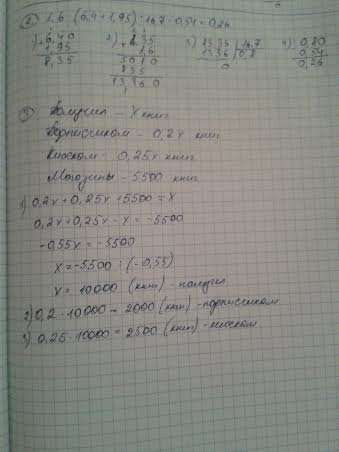 ② 1,6 · (6,4 + 1,95) : 16,7 - 0,54 = 0,26
1) 6,40 2) 8,35 3) 13,36 | 16,7 4) 0,80
+ 1,95 1,6 1336 | 0,8 0,54
8,35 5010 0 0,26
835
13,360
③ Получил – x книг
Подписчикам – 0,2x книг
Киоскам – 0,25x книг
Магазины – 5500 книг
1) 0,2x + 0,25x + 5500 = x
0,2x + 0,25x - x = -5500
-0,55x = -5500
x = -5500 : (-0,55)
x = 10000 (книг) - получил
2) 0,2 · 10000 = 2000 (книг) - подписчикам
3) 0,25 · 10000 = 2500 (книг) - киоскам